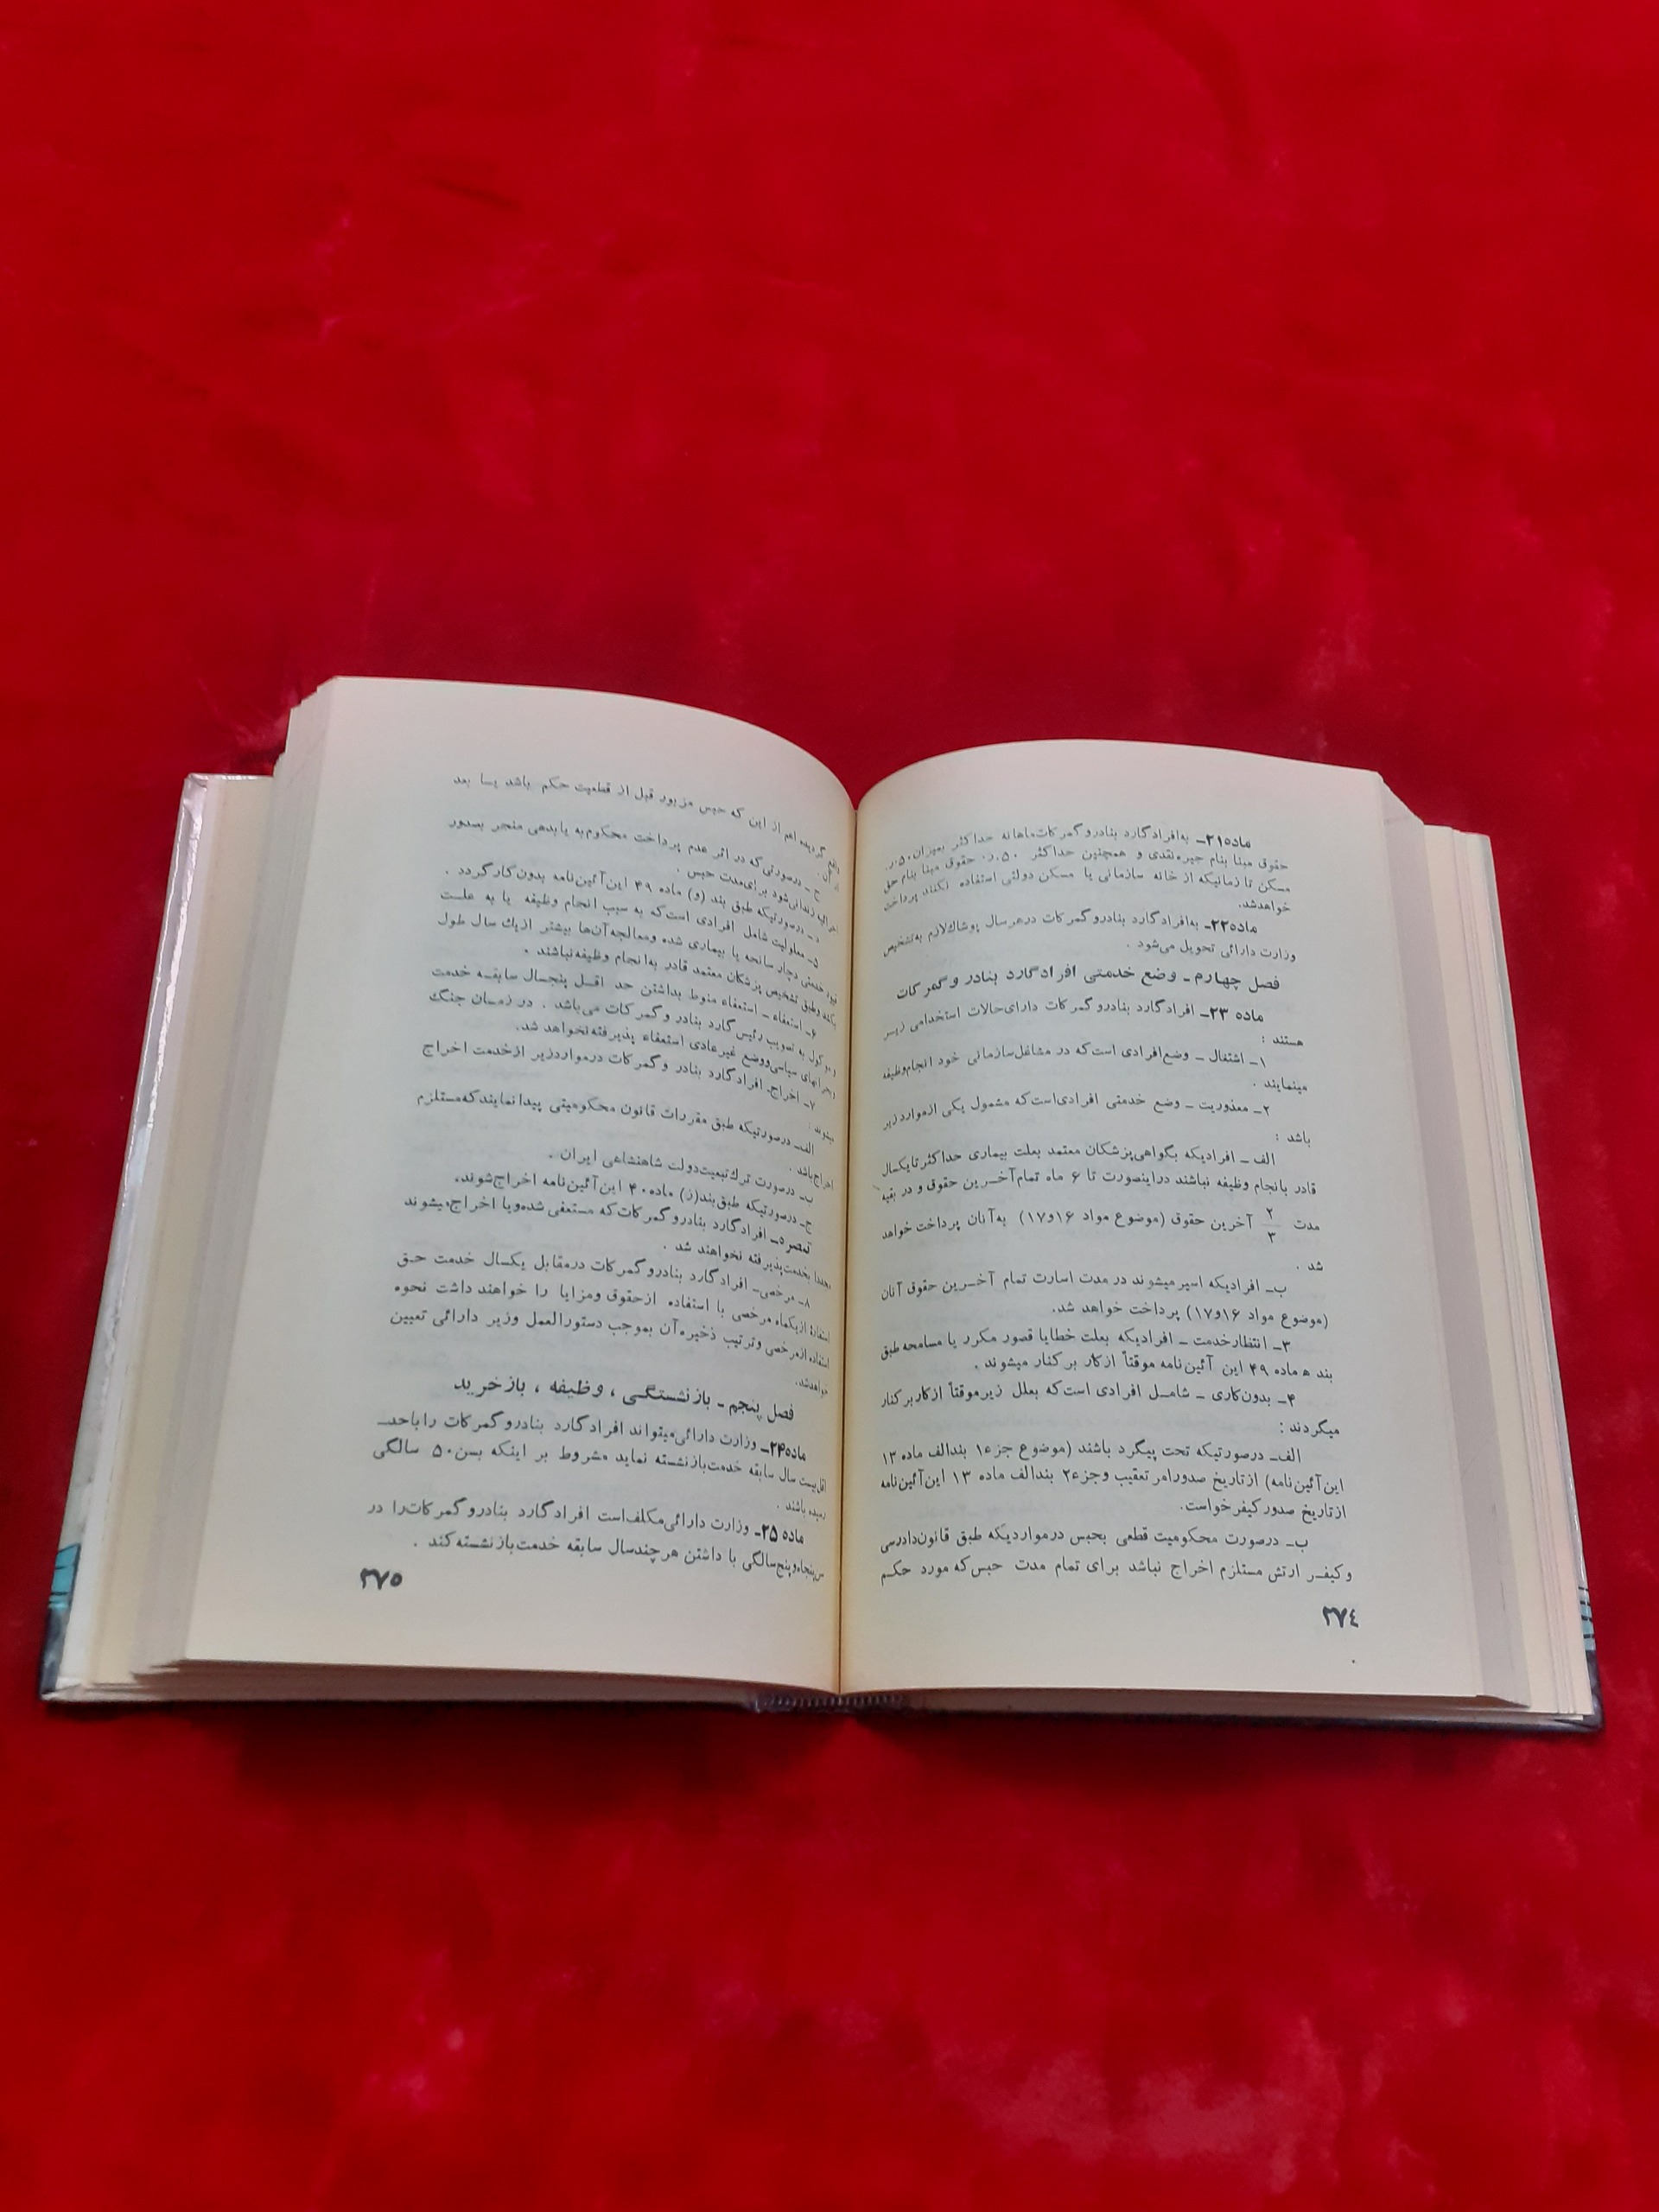 ماده۲۱ـ به‌افراد گارد بنادر و گمرکات ماهانه حداکثر بمیزان ۵۰ر.
حقوق مبنا بنام جیره‌نقدی و همچنین حداکثر ۵۰ر. حقوق مبنا بنام حق
مسکن تا زمانیکه از خانه سازمانی یا مسکن دولتی استفاده نکنند پرداخت
خواهدشد.
ماده۲۲ـ به‌افراد گارد بنادر و گمرکات درهر سال پوشاك لازم به‌تشخیص
وزارت دارائی تحویل می‌شود .
فصل چهارم ـ وضع خدمتی افراد گارد بنادر و گمرکات
ماده ۲۳ـ افراد گارد بنادر و گمرکات دارای حالات استخدامی زیر
هستند :
۱ـ اشتغال ـ وضع افرادی است که در مشاغل سازمانی خود انجام‌وظیفه
مینمایند .
۲ـ معذوریت ـ وضع خدمتی افرادی است که مشمول یکی از موارد زیر
باشد :
الف ـ افرادیکه بگواهی پزشکان معتمد بعلت بیماری حداکثر تا یکسال
قادر بانجام وظیفه نباشند دراینصورت تا ۶ ماه تمام آخرین حقوق و در بقیه
مدت ۲/۳ آخرین حقوق (موضوع مواد ۱۶و۱۷) به‌آنان پرداخت خواهد
شد .
ب‌ـ افرادیکه اسیر میشوند در مدت اسارت تمام آخرین حقوق آنان
(موضوع مواد ۱۶و۱۷) پرداخت خواهد شد.
۳ـ انتظار خدمت ـ افرادیکه بعلت خطایا قصور مکرر یا مسامحه طبق
بند ه ماده ۴۹ این آئین‌نامه موقتاً ازکار برکنار میشوند .
۴ـ بدون‌کاری ـ شامل افرادی است که بعلل زیر موقتاً ازکار برکنار
میگردند :
الف‌ـ درصورتیکه تحت پیگرد باشند (موضوع جزء۱ بندالف ماده ۱۳
این آئین‌نامه) ازتاریخ صدور امر تعقیب وجزء۲ بندالف ماده ۱۳ این‌آئین‌نامه
ازتاریخ صدور کیفرخواست.
ب‌ـ درصورت محکومیت قطعی بحبس درمواردیکه طبق قانون دادرسی
و کیفر ارتش مستلزم اخراج نباشد برای تمام مدت حبس که مورد حکم
۲۷٤
واقع گردیده اعم از این که حبس مزبور قبل از قطعیت حکم باشد یا بعد
از آن .
ج ـ درصورتی که در اثر عدم پرداخت محکوم‌به یا بدهی منجر بصدور
اجرائیه زندانی شود برای مدت حبس .
د ـ درصورتیکه طبق بند (و) ماده ۴۹ این آئین‌نامه بدون‌کار گردد .
۵ـ معلولیت شامل افرادی است که به سبب انجام وظیفه یا به علت
خدمتی دچار سانحه یا بیماری شده ومعالجه آن‌ها بیشتر از یك سال طول
بکشد وطبق تشخیص پزشکان معتمد قادر به‌انجام وظیفه‌نباشند .
۶ـ استعفاء ـ استعفاء منوط بداشتن حد اقل پنجسال سابقه خدمت
و موکول به تصویب رئیس گارد بنادر و گمرکات می‌باشد . در زمان جنگ
و بحرانهای سیاسی ووضع غیرعادی استعفاء پذیرفته نخواهد شد.
۷ـ اخراج‌ـ افراد گارد بنادر و گمرکات درموارد زیر از خدمت اخراج
میشوند :
الف‌ـ درصورتیکه طبق مقررات قانون محکومیتی پیدا نمایند که مستلزم
اخراج باشد .
ب‌ـ درصورت ترك تبعیت دولت شاهنشاهی ایران .
ج‌ـ درصورتیکه طبق بند(ز) ماده ۴۰ این آئین‌نامه اخراج شوند.
تبصره‌ـ افراد گارد بنادر و گمرکات که مستعفی شده ویا اخراج میشوند
مجددا بخدمت پذیرفته نخواهند شد .
۸ـ مرخصی‌ـ افراد گارد بنادر و گمرکات درمقابل یکسال خدمت حق
استفاده از یکماه مرخصی با استفاده ازحقوق ومزایا را خواهند داشت نحوه
استفاده از مرخصی وترتیب ذخیره آن بموجب دستورالعمل وزیر دارائی تعیین
خواهدشد.
فصل پنجم ـ بازنشستگی ، وظیفه ، بازخرید
ماده۲۴ـ وزارت دارائی میتواند افراد گارد بنادر و گمرکات را باحد-
اقل بیست سال سابقه خدمت بازنشسته نماید مشروط بر اینکه بسن ۵۰ سالگی
رسیده باشند .
ماده ۲۵ـ وزارت دارائی مکلف است افراد گارد بنادر و گمرکات را در
سن پنجاه و پنج سالگی با داشتن هرچند سال سابقه خدمت بازنشسته کند .
۲۷۵